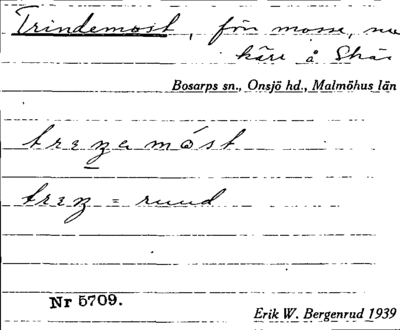 Trindemost, förr mosse, nu
kärr å Skär
Bosarps sn., Onsjö hd., Malmöhus län
trezamóst
trez = rund
Nr 5709.
Erik W. Bergenrud 1939